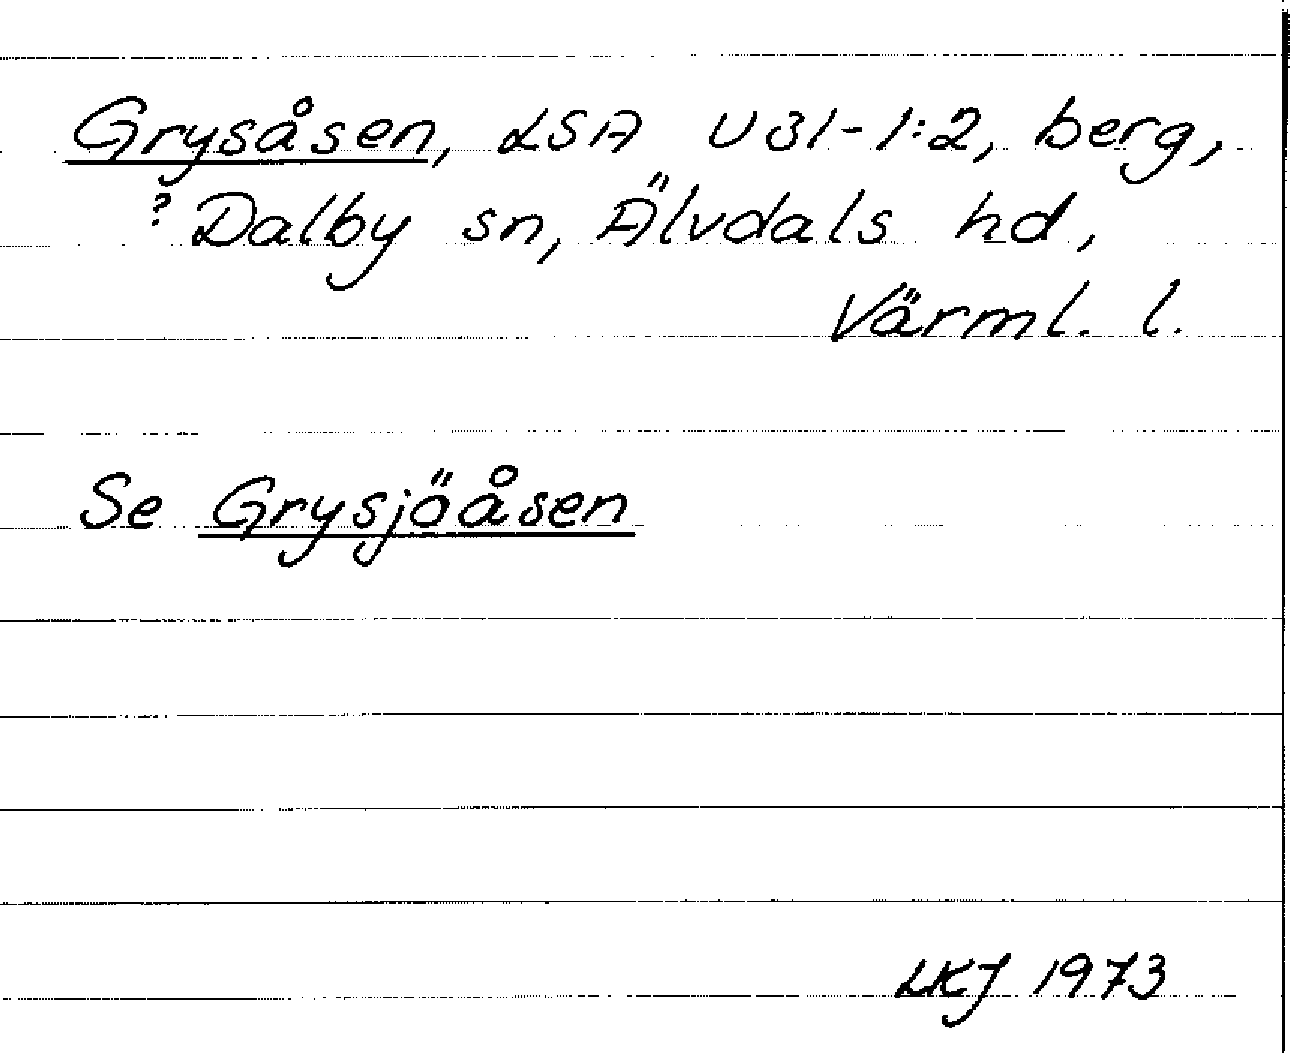 Grysåsen, LSA U31-1:2, berg,
? Dalby sn, Älvdals hd,
Värml. l.
Se Grysjöåsen
LKJ 1973